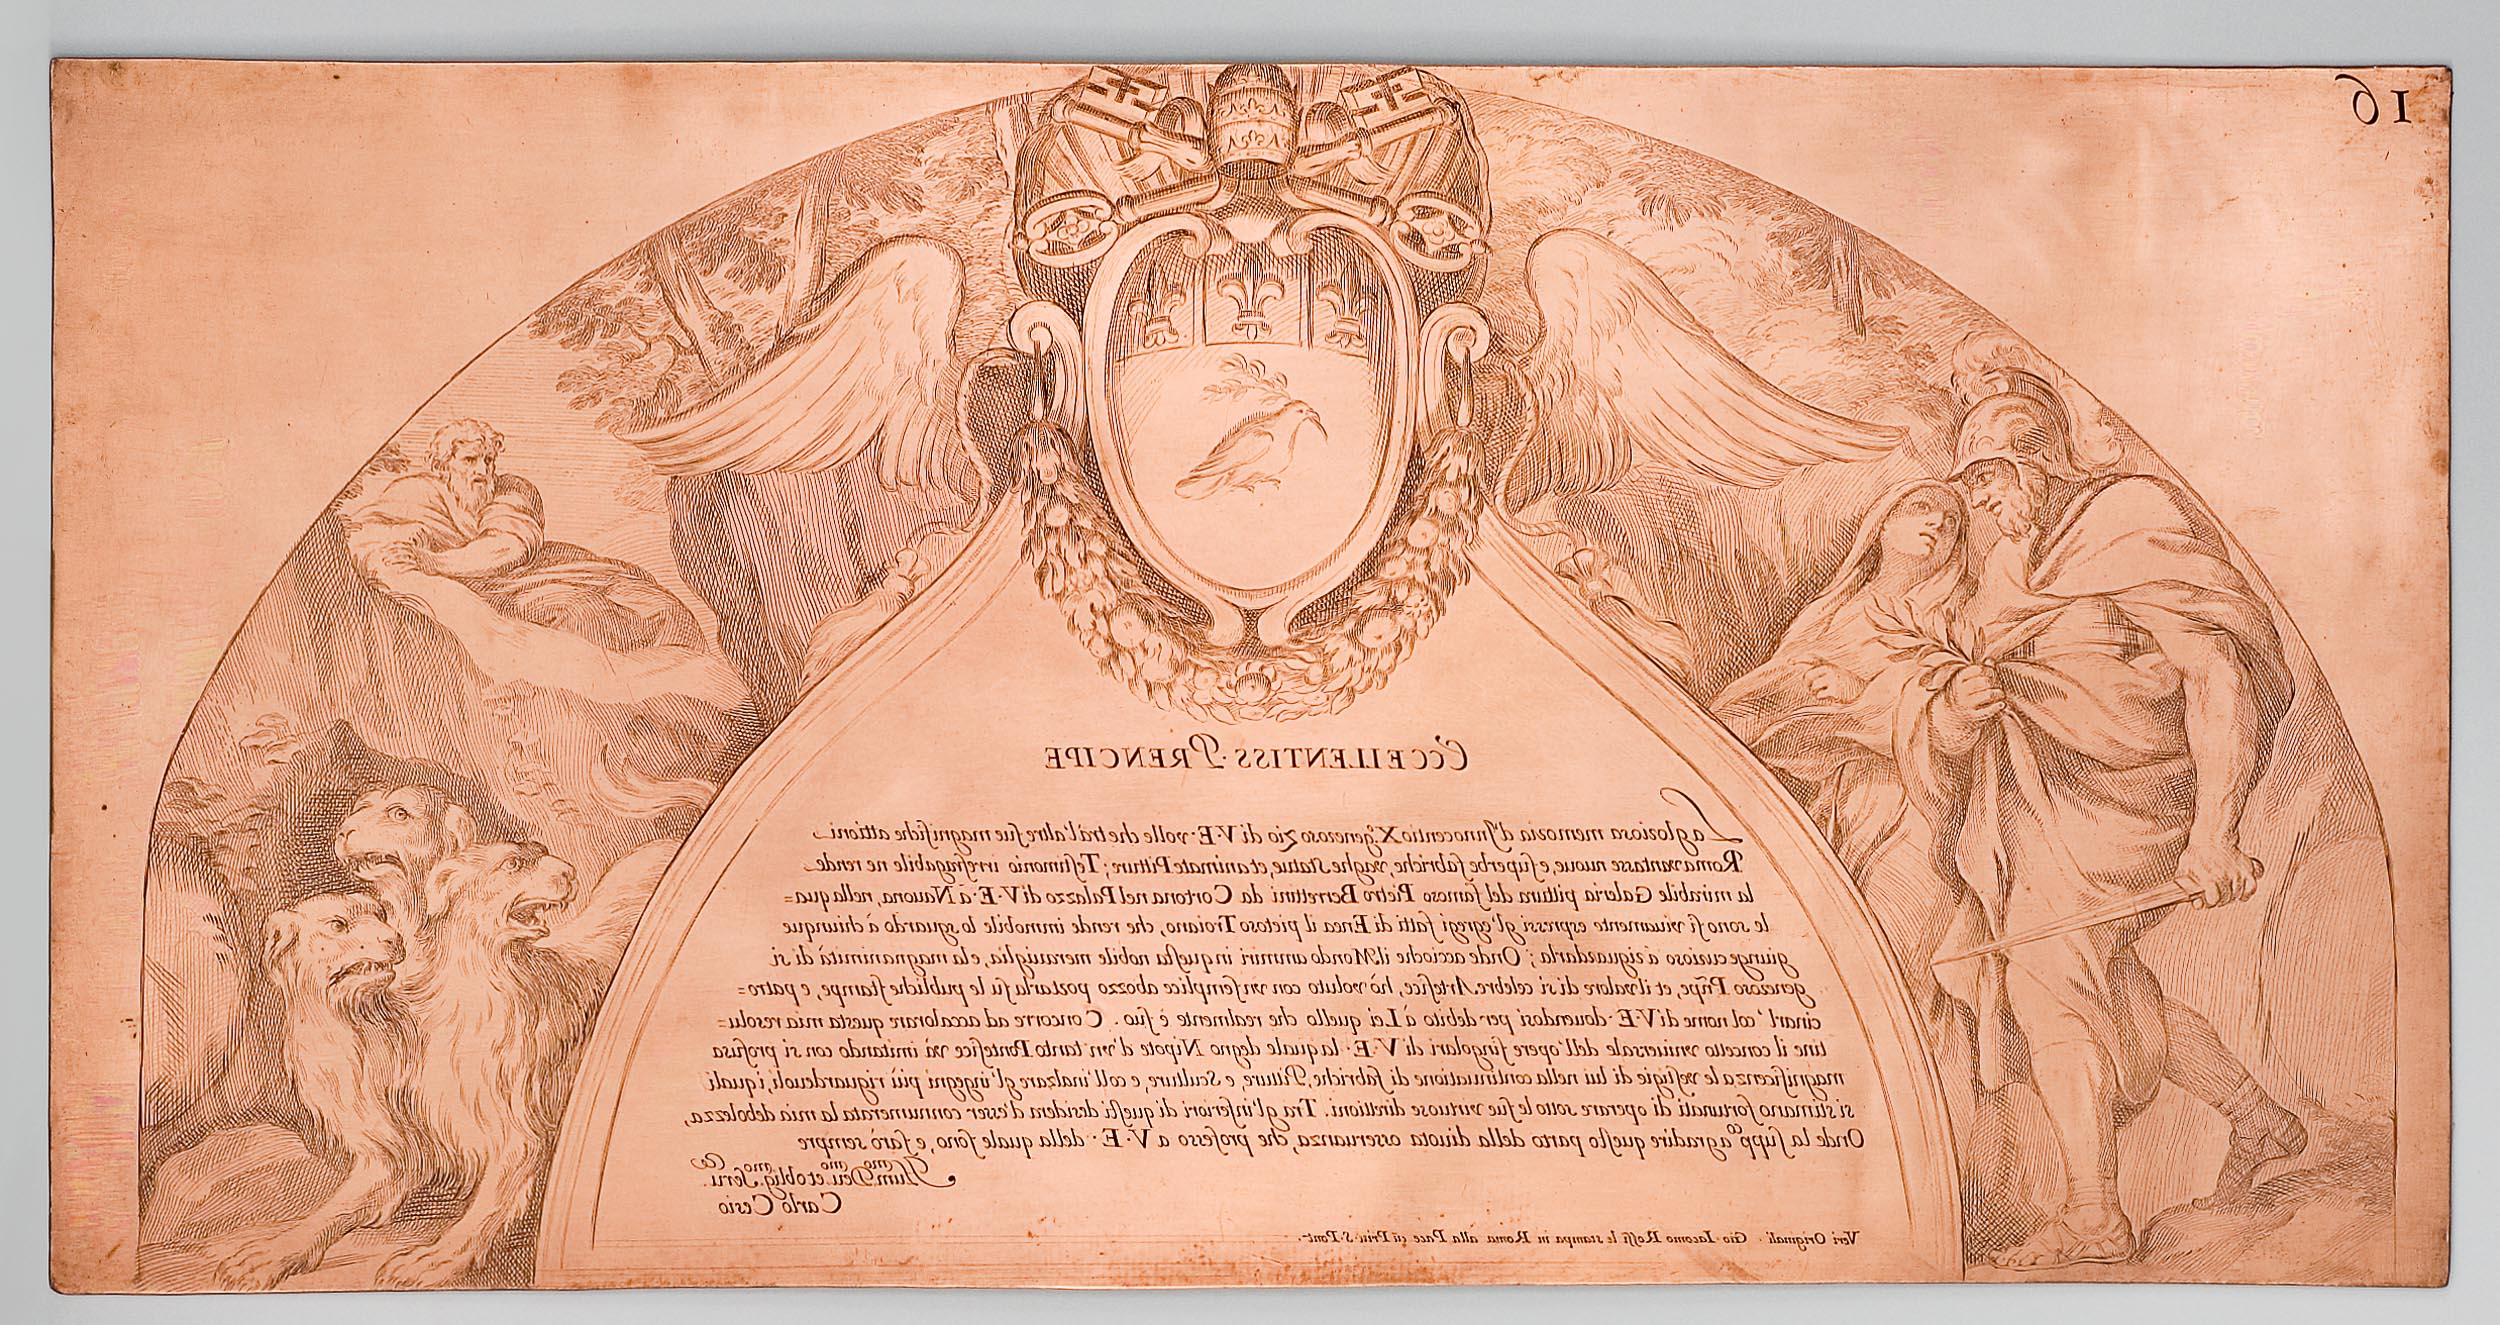 16
Eccellentiss. Prencipe
La gloriosa memoria d'Innocentio X.º generoso zio di V·E· volle che trà l'altre sue magnifiche attioni
Roma vantasse nuoue, e superbe fabriche, vaghe Statue, et animate Pitture; Testimonio irrefragabile ne rende
la mirabile Galeria pittura del famoso Pietro Berrettini da Cortona nel Palazzo di V·E· à Nauona, nella qua=
le sono sì viuamente espressi gl'egregi fatti di Enea il pietoso Troiano, che rende immobile lo sguardo à chiunque
giunge curioso à riguardarla; Onde accioche il Mondo ammiri in questa nobile merauiglia, e la magnanimità di si
generoso Prñpe, et il valore di si celebre Artefice, hò voluto con vn semplice abozzo portarla sù le publiche stampe, e patro=
cinarl' col nome di V·E· douendosi per debito à Lei quello che realmente è suo. Concorre ad accalorare questa mia resolu=
tine il concetto vniuersale dell'opere singolari di V·E· la quale degno Nipote d'vn tanto Pontefice và imitando con si profusa
magnificenza le vestigie di lui nella continuatione di fabriche, Pitture, e Sculture, e coll'inalzare gl'ingegni più riguardeuoli, i quali
si stimano fortunati di operare sotto le sue virtuose direttioni. Tra gl'inferiori di questi desidera d'esser connumerata la mia debolezza,
Onde la suppco a gradire questo parto della diuota osseruanza, che professo a V·E· della quale sono, e sarò sempre
Hummo Deumo et obligmo Seru.re
Carlo Cesio
Veri Originali · Gio· Iacomo Rossi le stampa in Roma alla Pace cũ Priu· S· Pont·